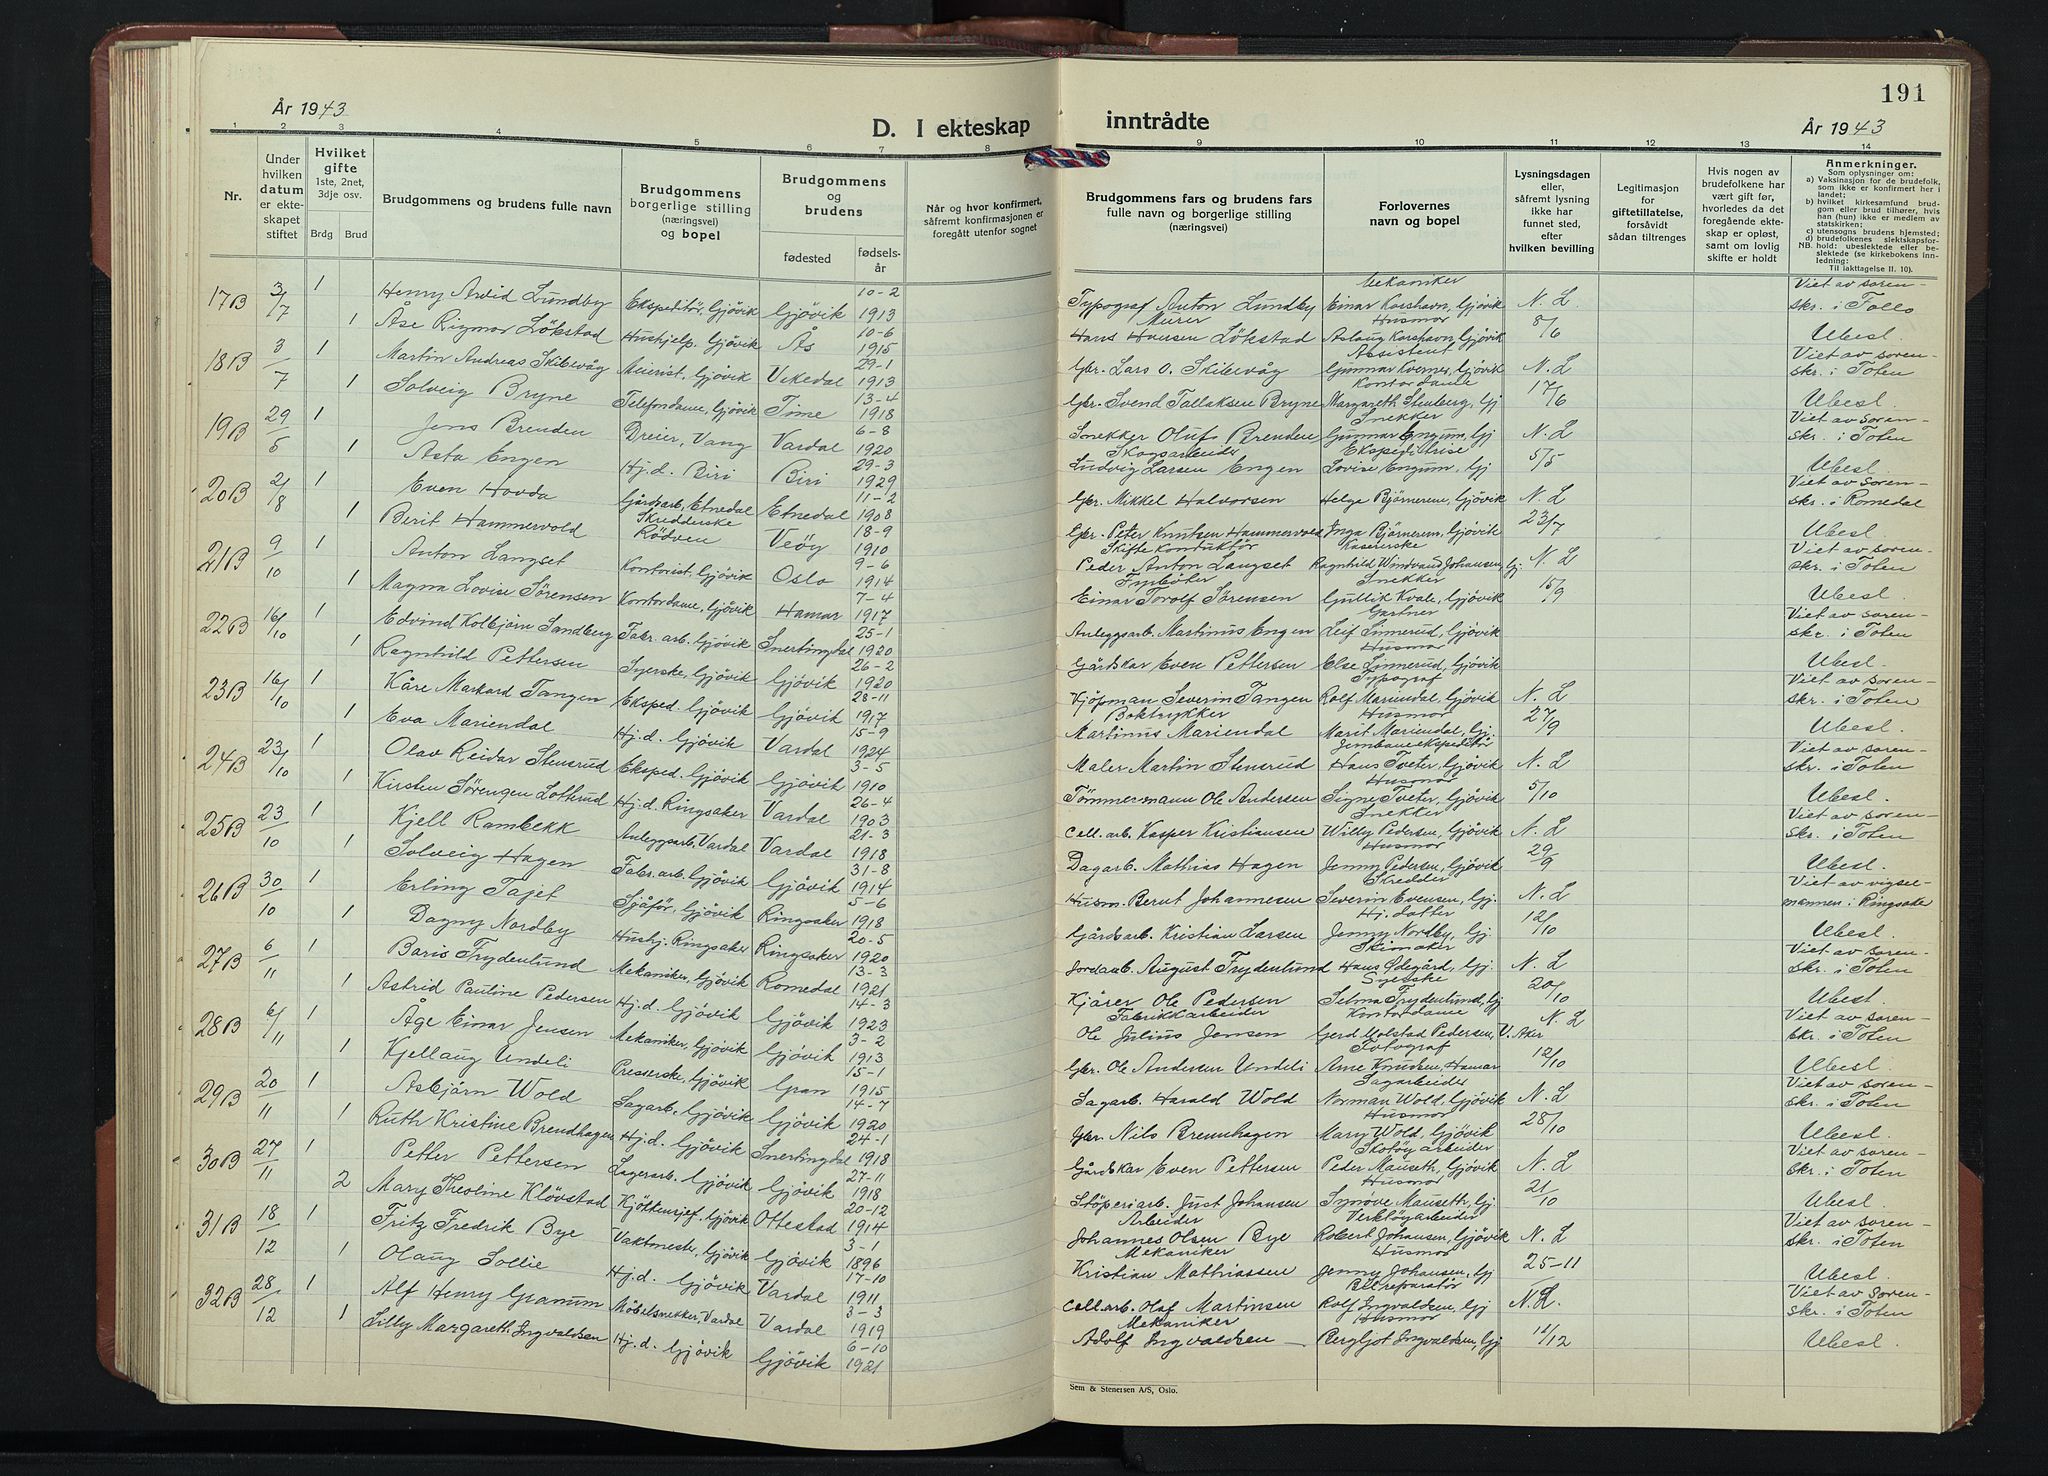 191
År 1943
D. I ekteskap inntrådte
År 1943
1 2 3 4 5 6 7 8 9 10 11 12 13 14
Nr.
Under hvilken datum er ekteskapet stiftet
Hvilket gifte 1ste, 2net, 3dje osv.
Brdg Brud
Brudgommens og brudens fulle navn
Brudgommens borgerlige stilling (næringsvei) og bopel
Brudgommens og brudens
fødested
fødselsår
Når og hvor konfirmert, såfremt konfirmasjonen er foregått utenfor sognet
Brudgommens fars og brudens fars fulle navn og borgerlige stilling (næringsvei)
Forlovernes navn og bopel
Lysningsdagen eller, såfremt lysning ikke har funnet sted, efter hvilken bevilling
Legitimasjon for giftetillatelse, forsåvidt sådan tiltrenges
Hvis nogen av brudefolkene har vært gift før, hvorledes da det foregående ekteskap er opløst, samt om lovlig skifte er holdt
Anmerkninger.
Som oplysning om:
a) Vaksinasjon for de brudefolk, som ikke er konfirmert her i landet;
b) hvilket kirkesamfund brudgom eller brud tilhører, hvis han (hun) ikke er medlem av statskirken;
c) utensogns brudens hjemsted;
d) brudefolkenes slektskapsforhold: ubeslektede eller beslektede (se kirkebokens innledning:
NB.
Til iakttagelse II. 10).
17B 3/7 1 Henry Arvid Lundby Ekspeditör, Gjövik Gjövik 10-2 1913 Typograf Anton Lundby mekaniker Einar Korshavn, Gjövik N. L. Viet av sorenskr. i Toten
1 Åse Rigmor Lökstad Hushjelp, Gjövik Ås 10-6 1915 Murer Hans Hansen Lökstad Husmor Aslaug Korshavn, Gjövik 8/6 Ubesl.
18B 3/7 1 Martin Andreas Skibevåg Meierist, Gjövik Vikedal 29-1 1913 Gbr. Lars O. Skibevåg Assistent Gunnar Kvernes, Gjövik N. L Viet av sorenskr. i Toten
1 Solveig Bryne Telefondame, Gjövik Time 13-4 1918 Gbr. Svend Tollaksen Bryne Kontordame Margareth Stenberg, Gj 17/6 Ubesl.
19B 29/5 1 Jens Brenden Dreier, Vang Vardal 6-8 1920 Snekker Oluf Brenden Snekker Gunnar Engum, Gj N. L Viet av sorenskr. i Toten
1 Asta Engen Hj.d. Biri Biri 29-3 1929 Skogsarbeider Ludvig Larsen Engen Ekspeditrise Lovise Engum, Gj 5/5 Ubesl.
20B 2/8 1 Even Hovda Gårdsarb, Etnedal Etnedal 11-2 1908 Gbr. Mikkel Halvorsen Helge Björnerem, Gjövik N. L Viet av sorenskr. i Romedal
1 Berit Hammervold Skredderske Rödven Veöy 18-9 1910 Gbr. Peter Knutsen Hammervold Inga Björnerem, Gjövik 23/7 Ubesl.
21B 9/10 1 Anton Langset Kontorist, Gjövik Oslo 9-6 1914 Skiftekonduktör Peder Anton Langset Kasserske Ragnhild Johansen, Gj. N. L Viet av sorenskr. i Toten
1 Magna Lovise Sörensen Kontordame, Gjövik Hamar 7-4 1917 Fyrböter Einar Torolf Sörensen Snekker Gullik Kvale, Gjövik 15/9 Ubesl.
22B 16/10 1 Edvind Kolbjörn Sandberg Fabr. arb. Gjövik Snertingdal 25-1 1920 Anleggsarb. Martinus Engen Gartner Leif Linnerud, Gjövik Viet av sorenskr. i Toten
1 Ragnhild Pettersen Syerske, Gjövik Gjövik 26-2 1920 Gårdskar Even Pettersen Husmor Else Linnerud, Gjövik Ubesl.
23B 16/10 1 Kåre Markard Tangen Eksped. Gjövik Gjövik 28-11 1917 Kjöpman Severin Tangen Typograf Rolf Mariendal, Gjövik N. L Viet av sorenskr. i Toten
1 Eva Mariendal Hj.d. Gjövik Vardal 15-9 1924 Boktrykker Martinus Mariendal Husmor Marit Mariendal, Gj. 27/9 Ubesl.
24B 23/10 1 Olav Reidar Stensrud Eksped. Gjövik Gjövik 3-5 1910 Maler Martin Stensrud Jernbaneekspeditör Hans Tveter, Gjövik N. L Viet av sorenskr. i Toten
1 Kirsten Sörengen Lotterud Hj.d. Ringsaker Vardal 26-4 1903 Tömmermann Ole Andersen Husmor Signe Tveter, Gjövik 5/10 Ubesl.
25B 23/10 1 Kjell Rambekk Anleggsarb, Vardal Vardal 21-3 1918 Cell. arb. Kasper Kristiansen Snekker Willy Pedersen, Gjövik N. L Viet av sorenskr. i Toten
1 Solveig Hagen Fabr. arb. Gjövik Gjövik 31-8 1914 Dagarb. Mathias Hagen Husmor Jenny Pedersen, Gjövik 29/9 Ubesl.
26B 30/10 1 Erling Tajet Sjåför, Gjövik Ringsaker 5-6 1918 Husm. Bernt Johannesen Skredder Severin Evensen, Gj. N. L Viet av vigselmannen i Ringsaker
1 Dagny Nordby Hushj. Ringsaker Ringsaker 20-5 1920 Gårdsarb. Kristian Larsen Hj. datter Jenny Nordby, Gj. 12/10 Ubesl.
27B 6/11 1 Boris Frydenlund Mekaniker, Gjövik Romedal 13-3 1921 Jordarb. August Frydenlund Skimaker Hans Ødegård, Gj. N. L Viet av sorenskr. i Toten
1 Astrid Pauline Pedersen Hj.d. Gjövik Gjövik 14-3 1923 Kjörer Ole Pedersen Syerske Selma Frydenlund, Gj 20/10 Ubesl.
28B 6/11 1 Åge Einar Jensen Mekaniker, Gjövik Gjövik 3-2 1913 Fabrikkarbeider Ole Julius Jensen Kontordame Gerd Wolstad Pedersen, V. Aker N. L Viet av sorenskr. i Toten
1 Kjellaug Undeli Presserske, Gjövik Gran 15-1 1915 Gbr. Ole Andersen Undeli Fotograf Arne Knudsen, Hamar 12/10 Ubesl.
29B 20/11 1 Asbjörn Wold Sagarb, Gjövik Gjövik 14-7 1920 Sagarb. Harald Wold Sagarbeider Norman Wold, Gjövik N. L Viet av sorenskr. i Toten
1 Ruth Kristine Brendhagen Hj.d. Gjövik Snertingdal 24-1 1918 Gbr. Nils Brennhagen Husmor Mary Wold, Gjövik 28/10 Ubesl.
30B 27/11 1 Petter Pettersen Lagerarb. Gjövik Gjövik 27-11 1918 Gårdskar Even Pettersen Skotöyarbeider Peder Mauseth, Gjövik N. L Viet av sorenskr. i Toten
2 Mary Theoline Klövstad Gjövik Ottestad 20-12 1914 Stöperiarb. Just Johansen Husmor Synöve Mauseth, Gj. 21/10 Ubesl.
31B 18/12 1 Fritz Fredrik Bye Vaktmester, Gjövik Gjövik 3-1 1896 Arbeider Johannes Olsen Bye Verktöyarbeider Robert Johansen, Gjövik N. L Viet av sorenskr. i Toten
1 Olaug Sollie Hj.d. Gjövik Vardal 17-10 1911 Mekaniker Kristian Mathiassen Husmor Jenny Johansen, Gj 25-11 Ubesl.
32B 28/12 1 Alf Henry Granum Möbelsnekker, Vardal Vardal 3-3 1919 Cell. arb. Olaf Martinsen Bilreparatör Rolf Ingvaldsen, Gj N. L. Viet av sorenskr. i Toten
1 Lilly Margareth Ingvaldsen Hj.d. Gjövik Gjövik 6-10 1921 Mekaniker Adolf Ingvaldsen Husmor Bergljot Ingvaldsen, Gj 11/12 Ubesl.
Sem & Stenersen A/S, Oslo.